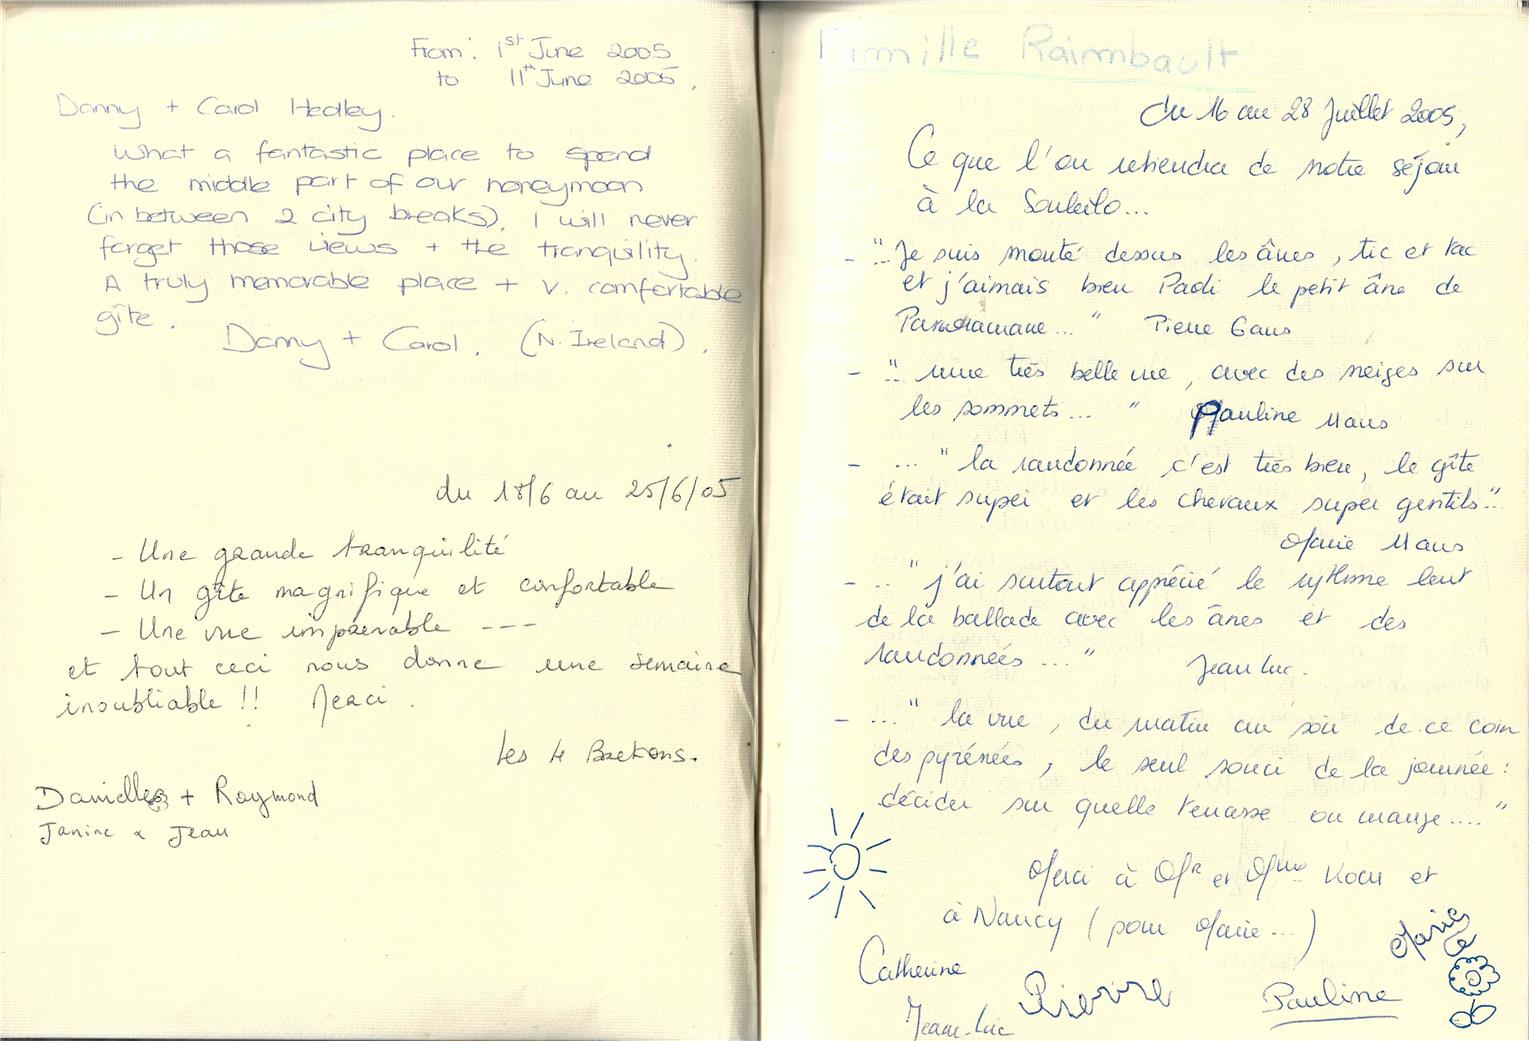 From: 1st June 2005
to 11th June 2005.
Danny + Carol Hedley.
What a fantastic place to spend
the middle part of our honeymoon
(in between 2 city breaks). I will never
forget those views + the tranquility.
A truly memorable place + v. comfortable
gîte.
Danny + Carol. (N. Ireland).
du 18/6 au 25/6/05
- Une grande tranquilité
- Un gîte magnifique et confortable
- Une vue imprenable ---
et tout ceci nous donne une semaine
inoubliable !! Merci.
Les 4 Bretons.
Danielle + Raymond
Janine & Jean
Famille Raimbault
du 16 au 28 Juillet 2005,
Ce que l'on retiendra de notre séjour
à la Souleilo...
- "...Je suis monté dessus les ânes, tic et tac
et j'aimais bien Paoli le petit âne de
... " Pierre 6ans
- "... une très belle vue, avec des neiges sur
les sommets... " Pauline 11ans
- ... " la randonnée c'est très bien, le gîte
était super et les chevaux super gentils"..
Marie 11ans
- .. "j'ai surtout apprécié le rythme lent
de la ballade avec les ânes et des
randonnées ... " Jean Luc.
- ... " la vue, du matin au soir de ce coin
des pyrénées, le seul souci de la journée :
décider sur quelle terrasse on mange.... "
Merci à Mr et Mme Kocu et
à Nancy (pour Marie...)
Catherine
Marie
Pierre
Pauline
Jean-Luc